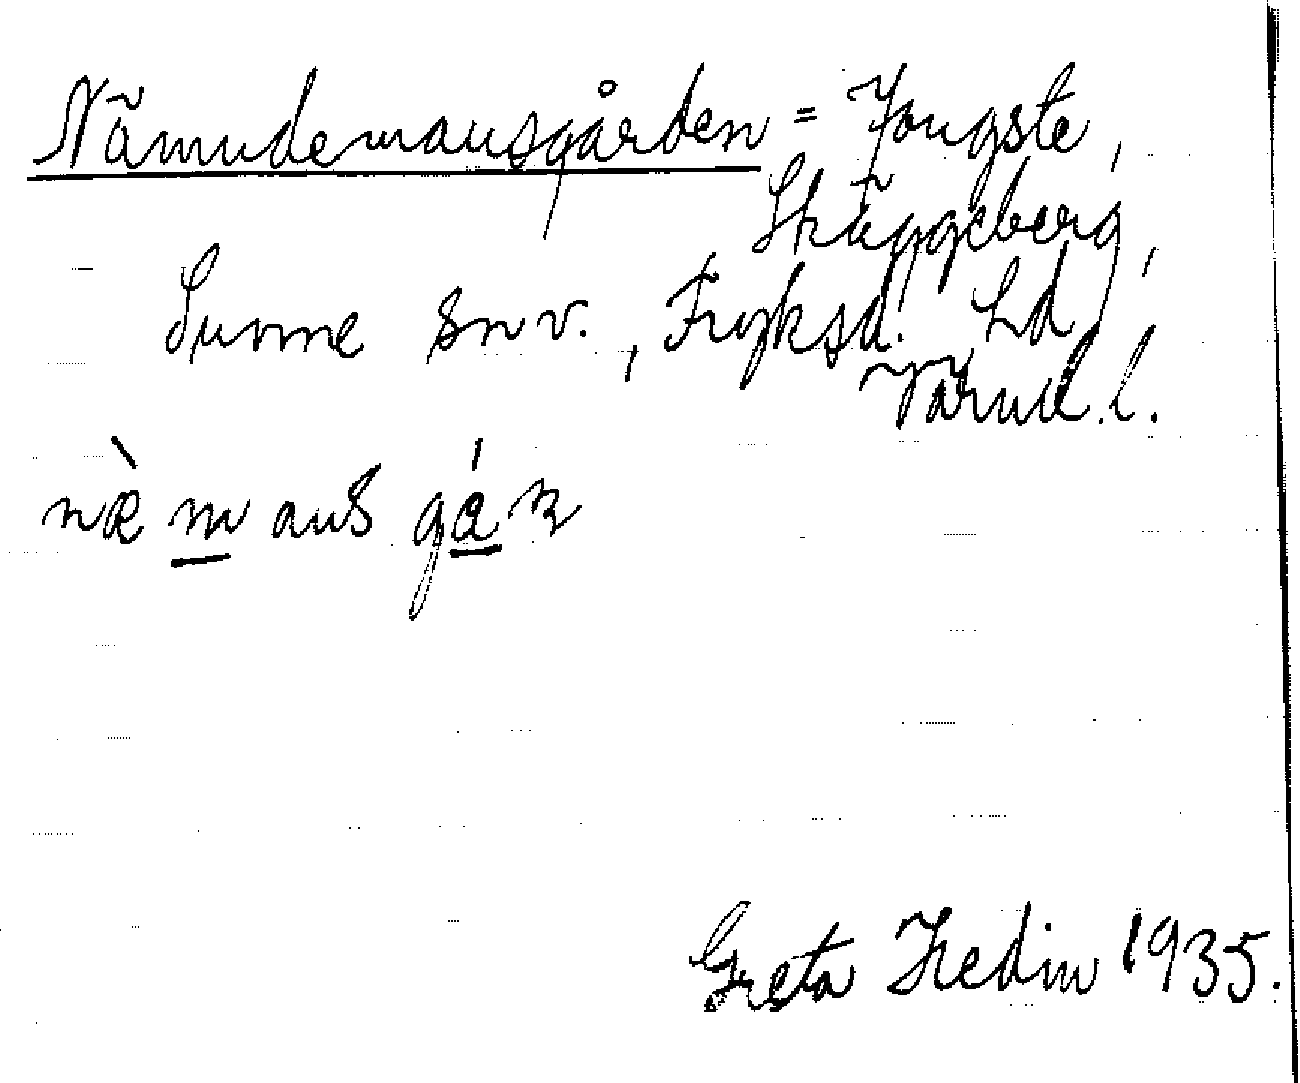 Nämndemansgården = Jongste,
Skäggeberg,
Sunne snv., Fryksd. hd,
Värml. l.
nὰ m ans gá ꞃ
Greta Hedin 1935.